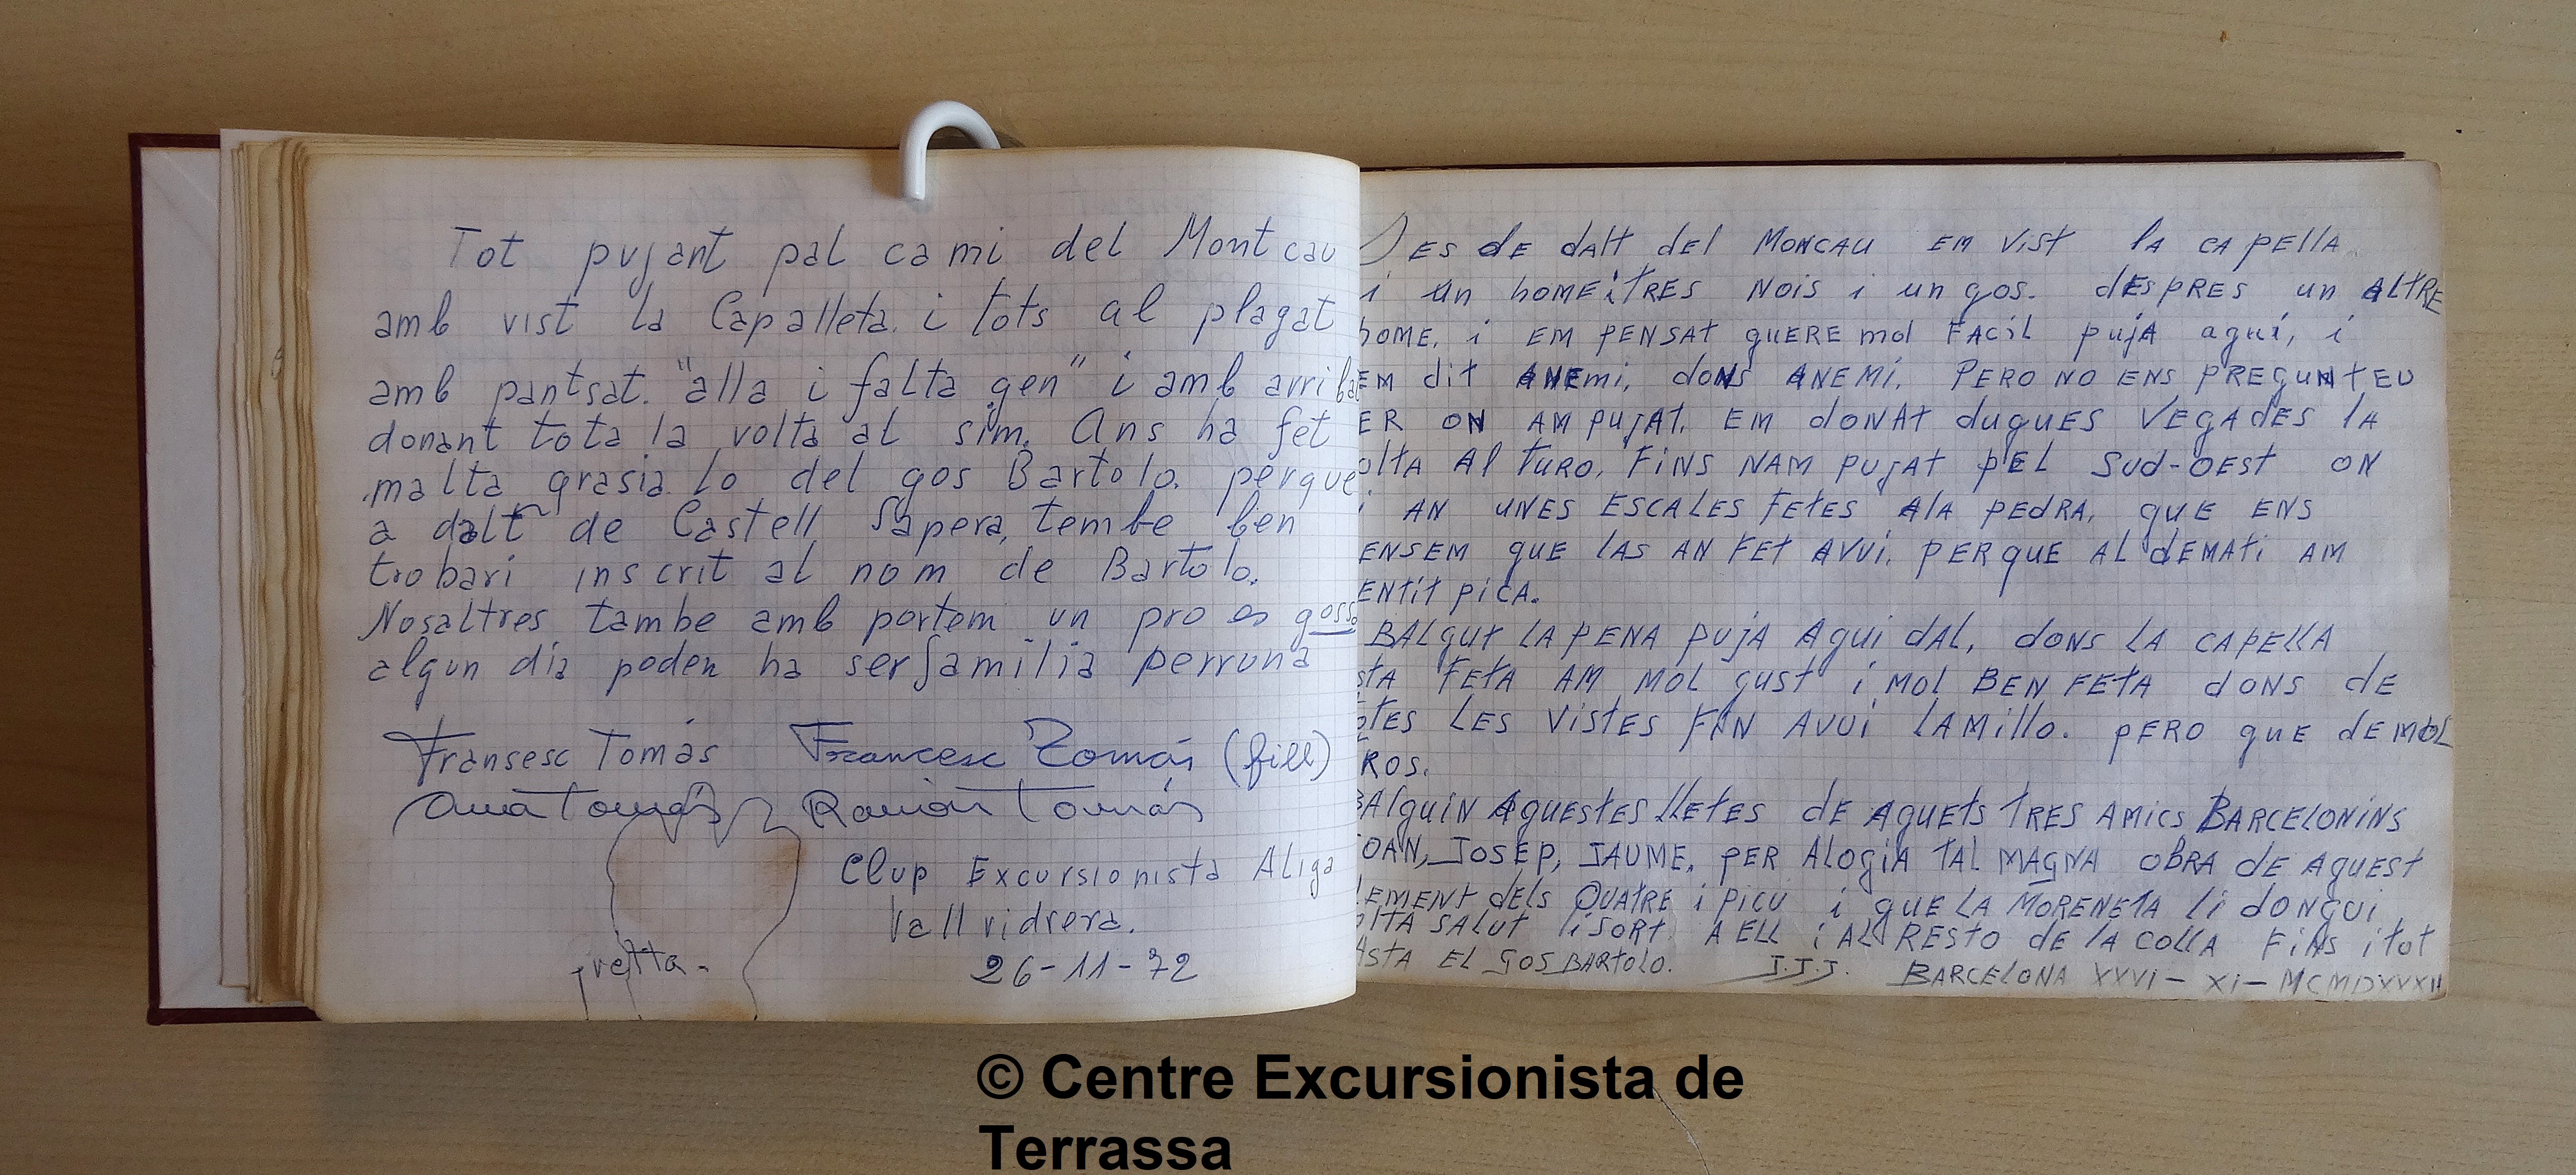 Tot pujant pal cami del Montcau
amb vist la Capalleta. i tots al plagat
amb pantsat. "alla i falta gen" i amb arribat
donant tota la volta al sim. Ans ha fet
malta grasia lo del gos Bartolo. perque
a dalt de Castell Sapera, tembe ben
trobari inscrit al nom de Bartolo.
Nosaltres tambe amb portem un pro es gossa
algun dia poden ha ser familia perruna
Fransesc Tomás Francesc Tomás (fill)
Anna Tomás Ramón Tomás
Clup Excursionista Aliga
Vallvidrera.
26-11-72
DES dE dAlt del MONCAU EM Vist lA CApEllA
i un homE i TRES Nois i un gos. dESpRES un AltRE
hOME, i EM pENSAt quERE mol FACil pujA aqui, i
EM dit ANEmi, doNS ANEMi. PERO NO ENS PREGUNTEU
ER ON AM pujAt. EM doNAt duguES VEGAdES lA
oltA Al TuRO, FiNS NAM pujAt pEL Sud-OEst ON
i AN UNES ESCALES FEtES AlA pEdRA, quE ENS
ENSEM quE lAS AN FEt AVUi. PERquE AL dEMAti AM
ENtit piCA.
BALgut LA pENA pujA Aqui dAL, dONS LA CApEllA
stA FEtA AM MOL gust i MOL BEN FEtA dONS dE
OtES LES VistES FiN AVUi lAMillo. pERO quE dEMOL
ROS.
BAlguiN AquEStES llEtES dE AquEts TRES AMiCS BARCELONiNS
OAN, JOSEP, JAUME. pER AlogiA TAL MAGNA OBRA dE AquESt
LEMENt dELS QUAtRE i piCU i quE LA MORENEtA li doNgui
OltA SAlut i SORt A ELL i AL RESTO dE lA COllA FiNS i tot
AStA EL gOS BARtOlO. J.J.J. BARCELONA XXVI-XI-MCMDXXXII
© Centre Excursionista de
Terrassa